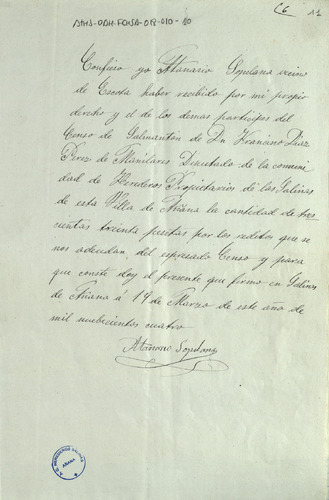 AHS-DAH-FCHSA-018-010-10
C6 11
Confieso yo Atanario Sopelana vecino
de Escota haber recibido por mi propio
derecho y el de los demas participes del
Censo de Salmantón de Dn Uraniano Diaz
Perez de Manilares Diputado de la comuni
dad de Herederos Propietarios de las Salinas
de esta Villa de Añana la cantidad de tres
cientas treinta pesetas por los reditos que se
nos adeudan, del espresado Censo y para
que conste doy el presente que firmo en Salinas
de Añana á 19 de Marzo de este año de
mil nuebecientos cuatro
Atanario Sopelana
AÑANA